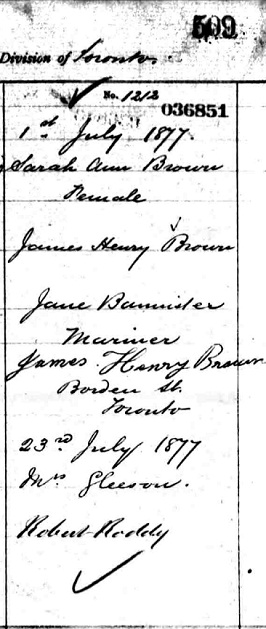 509
Division of Toronto
No. 1212
036851
1st July 1877
Sarah Ann Brown
Female
James Henry Brown
Jane Bannister
Mariner
James Henry Brown
Borden St.
Toronto
23rd July 1877
Mrs Gleeson.
Robert Roddy